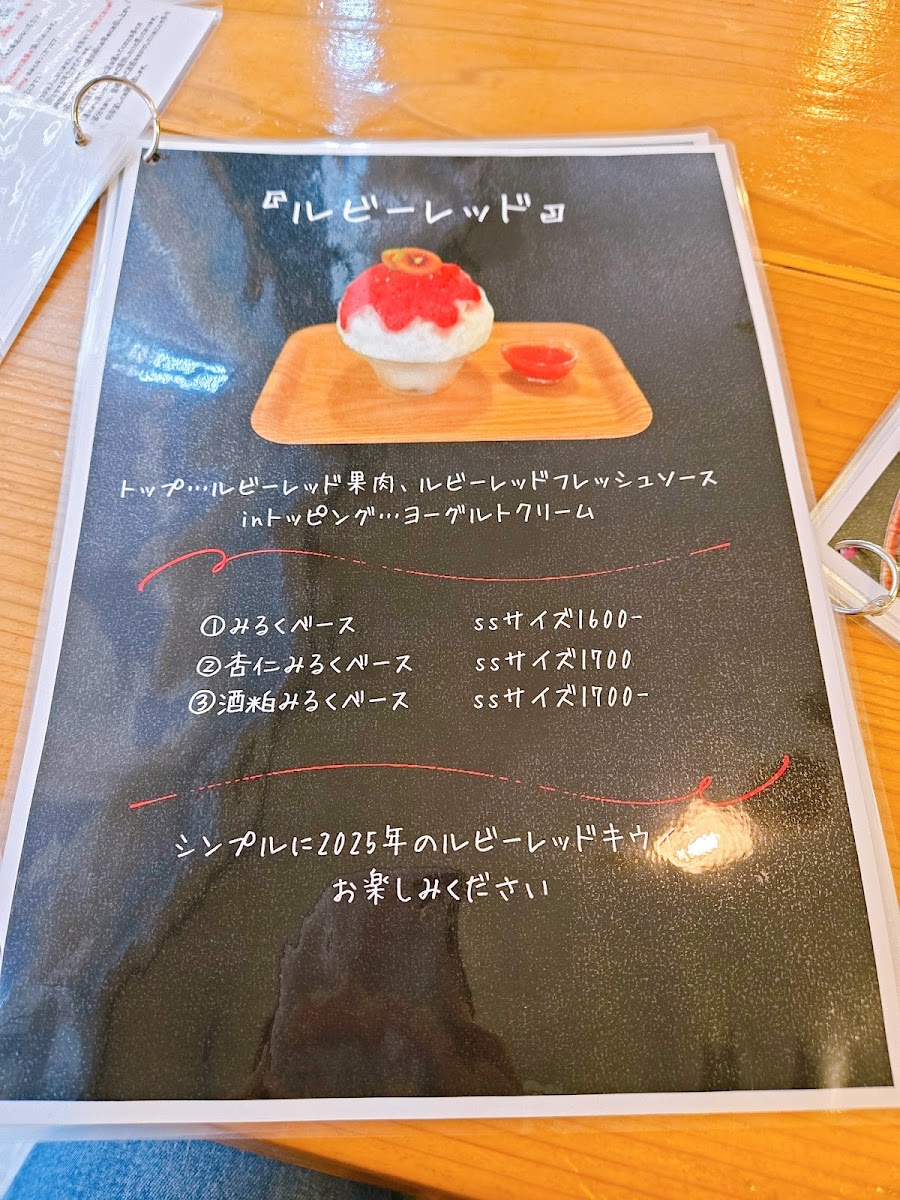 『ルビーレッド』
トップ…ルビーレッド果肉、ルビーレッドフレッシュソース
inトッピング…ヨーグルトクリーム
①みるくベース ssサイズ1600-
②杏仁みるくベース ssサイズ1700
③酒粕みるくベース ssサイズ1700-
シンプルに2025年のルビーレッドキウ
お楽しみください